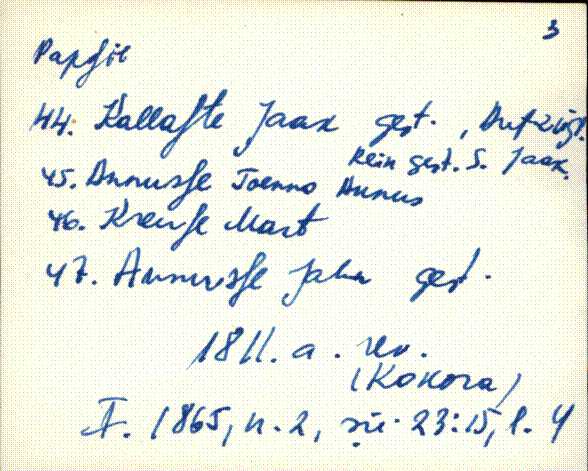 3
44. Kallaste Jaax gest.,
Rein gest. S. Jaax.
45. Annusse Joenno Annus
46. Kreuse Mart
47. Annusse Jahn gest.
1811. a. rev.
(Kokora)
F. 1865, n. 2, sü. 23:15, l. 4